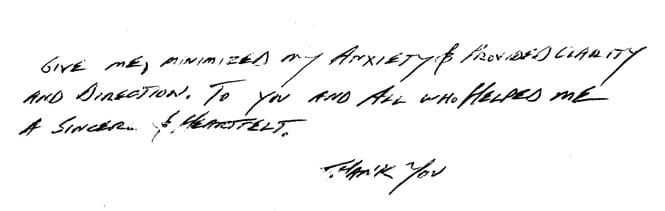 GIVE ME, MINIMIZED MY ANXIETY & PROVIDED CLARITY
AND DIRECTION. TO YOU AND ALL WHO HELPED ME
A SINCERE & HEARTFELT.
THANK YOU